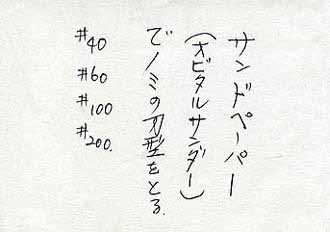 サンドペーパー
(オビタルサンダー)
でノミの刃型をとる.
#40
#60
#100
#200.